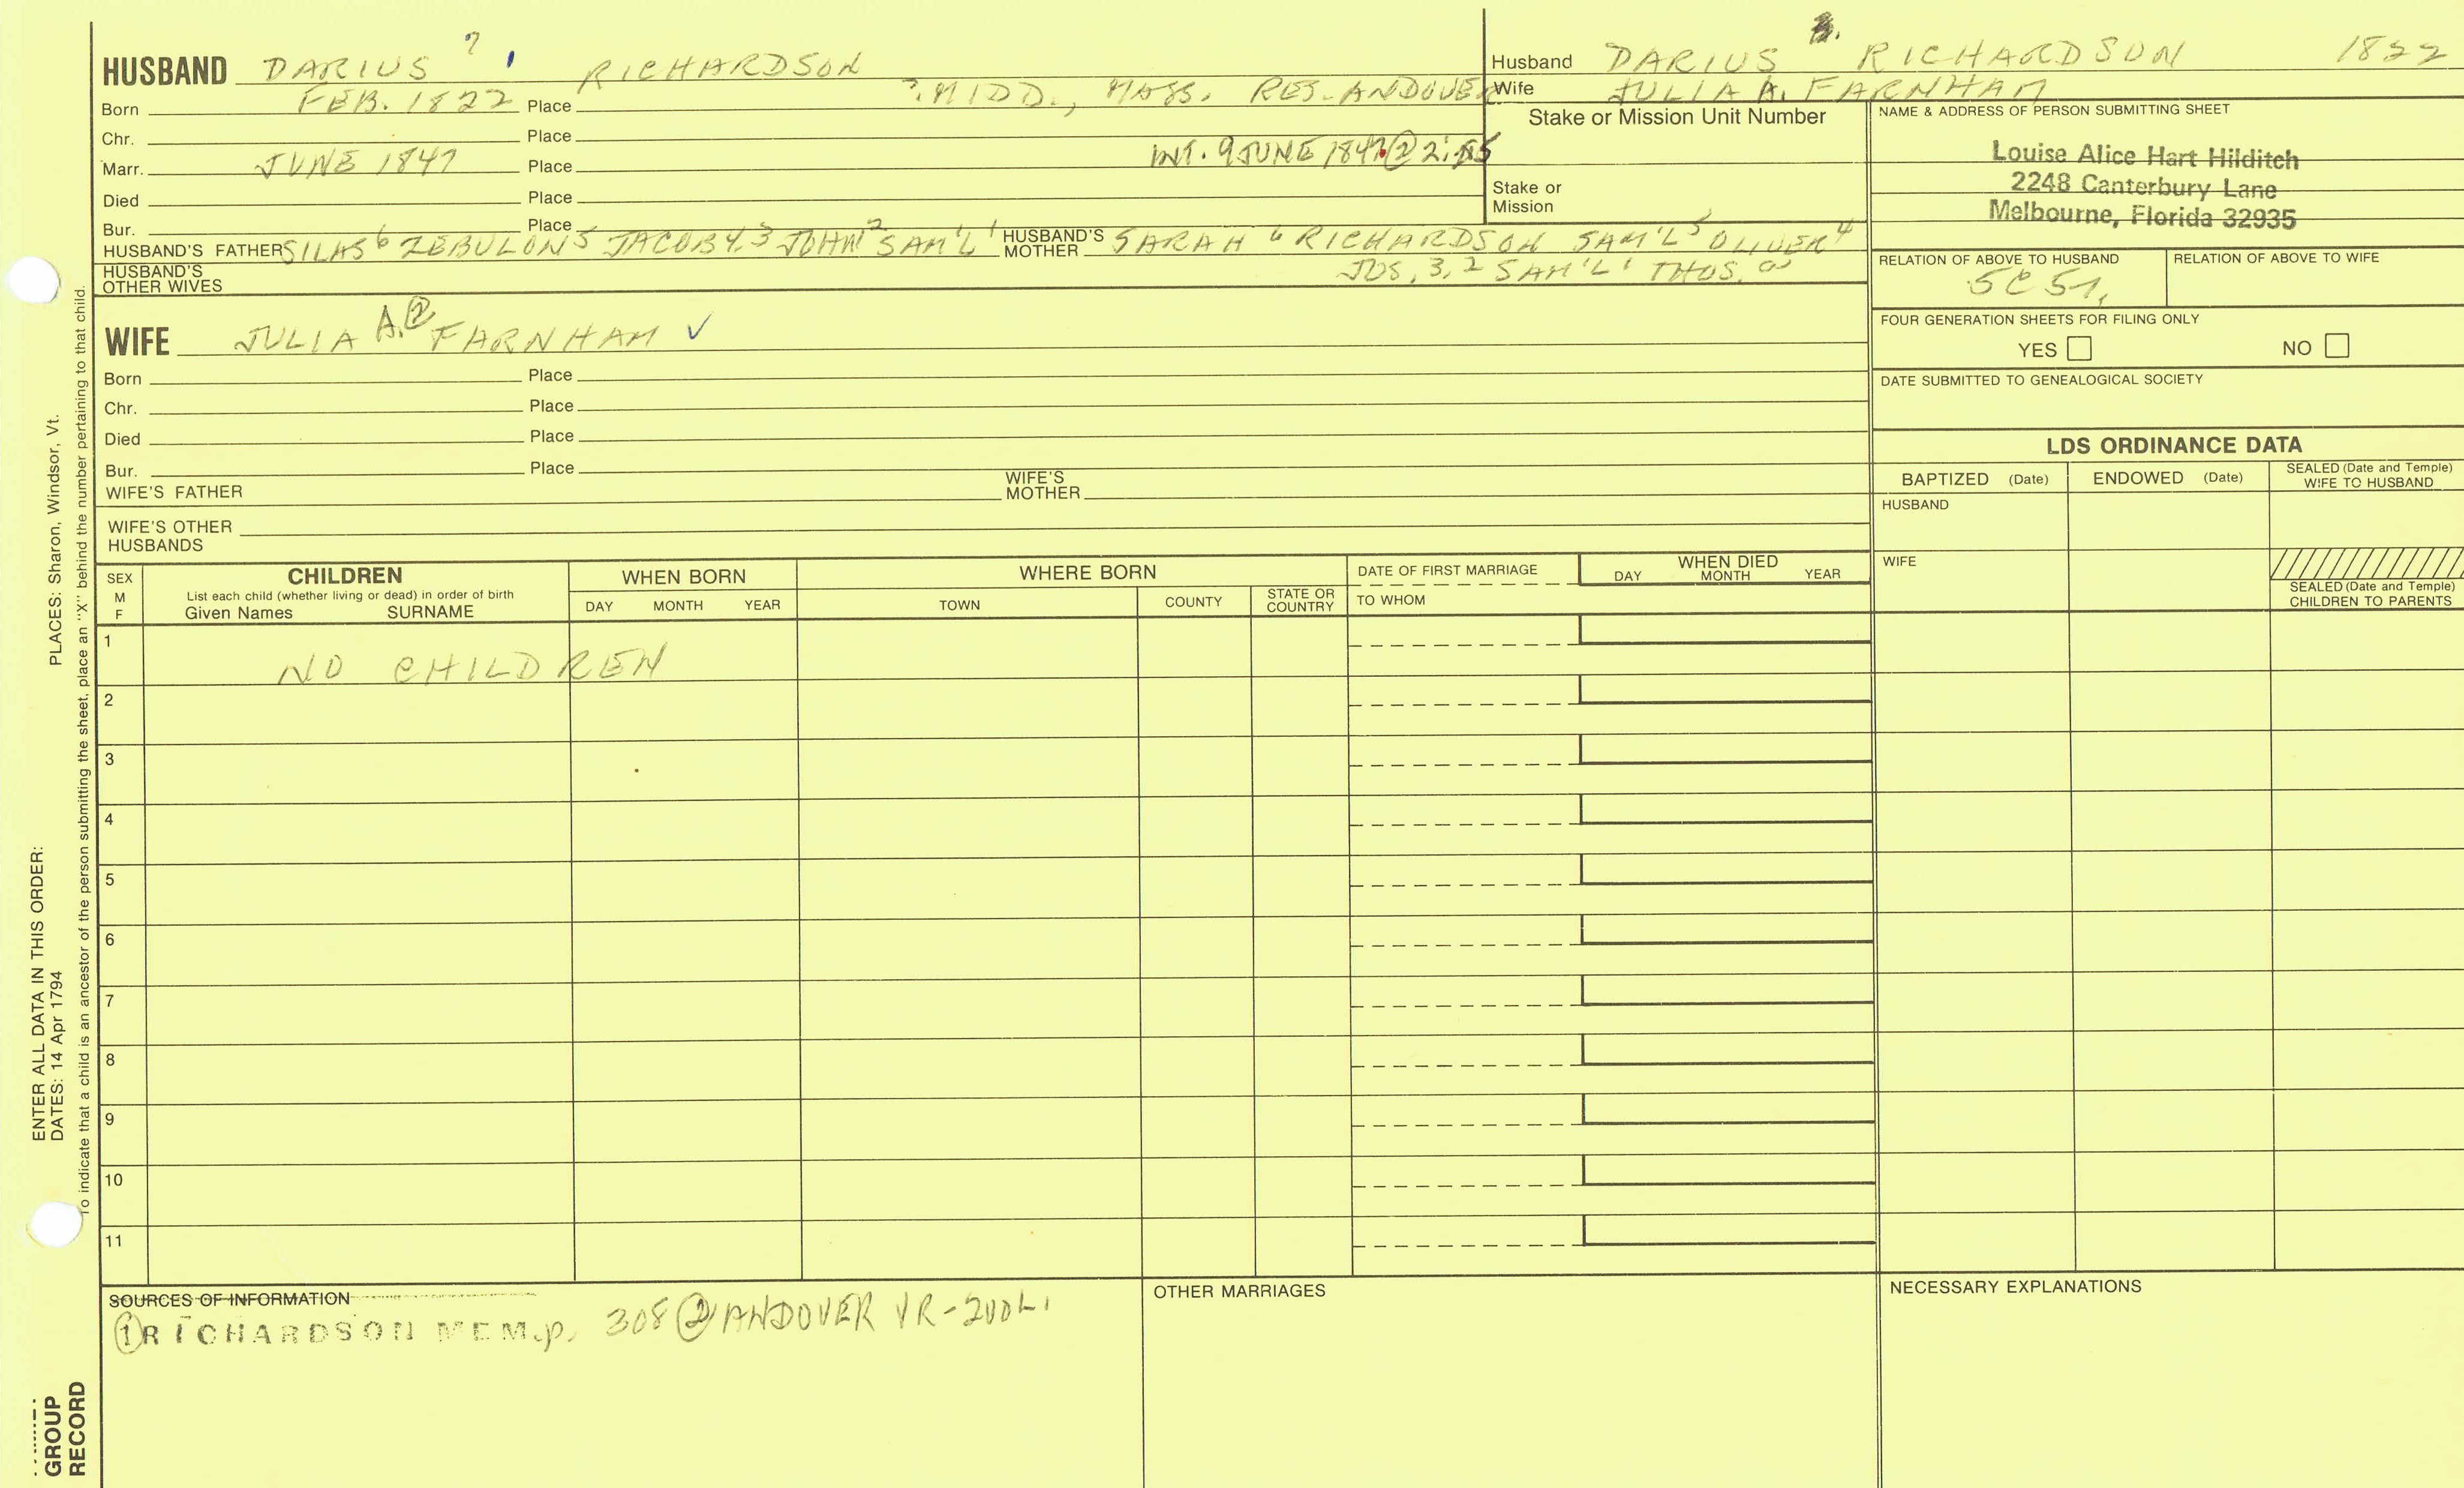 HUSBAND DARIUS ? RICHARDSON
Born FEB. 1822 Place ? MIDD., MASS. RES. ANDOVER
Chr. Place
Marr. JUNE 1847 Place INT. 9 JUNE 1847 ② 2:
Died Place
Bur. Place
HUSBAND'S FATHER SILAS 6 ZEBULON 5 JACOB 4,3 JOHN 2 SAM'L 1 HUSBAND'S MOTHER SARAH 6 RICHARDSON SAM'L 5 OLIVER 4
JOS. 3,2 SAM'L 1 THOS.
HUSBAND'S OTHER WIVES
Husband DARIUS RICHARDSON 1822
Wife JULIA A. FARNHAM
Stake or Mission Unit Number
Stake or Mission
NAME & ADDRESS OF PERSON SUBMITTING SHEET
Louise Alice Hart Hilditch
2248 Canterbury Lane
Melbourne, Florida 32935
RELATION OF ABOVE TO HUSBAND RELATION OF ABOVE TO WIFE
5C
FOUR GENERATION SHEETS FOR FILING ONLY
YES NO
DATE SUBMITTED TO GENEALOGICAL SOCIETY
WIFE JULIA A. ② FARNHAM ✓
Born Place
Chr. Place
Died Place
Bur. Place
WIFE'S FATHER WIFE'S MOTHER
WIFE'S OTHER HUSBANDS
LDS ORDINANCE DATA
BAPTIZED (Date) ENDOWED (Date) SEALED (Date and Temple) WIFE TO HUSBAND
HUSBAND
WIFE
SEALED (Date and Temple) CHILDREN TO PARENTS
SEX M F
CHILDREN
List each child (whether living or dead) in order of birth
Given Names SURNAME
WHEN BORN
DAY MONTH YEAR
WHERE BORN
TOWN COUNTY STATE OR COUNTRY
DATE OF FIRST MARRIAGE
TO WHOM
WHEN DIED
DAY MONTH YEAR
1 NO CHILDREN
2
3
4
5
6
7
8
9
10
11
SOURCES OF INFORMATION
① RICHARDSON MEM. p. 308 ② ANDOVER VR-
OTHER MARRIAGES
NECESSARY EXPLANATIONS
PLACES: Sharon, Windsor, Vt.
To indicate that a child is an ancestor of the person submitting the sheet, place an "X" behind the number pertaining to that child.
ENTER ALL DATA IN THIS ORDER:
DATES: 14 Apr 1794
GROUP
RECORD